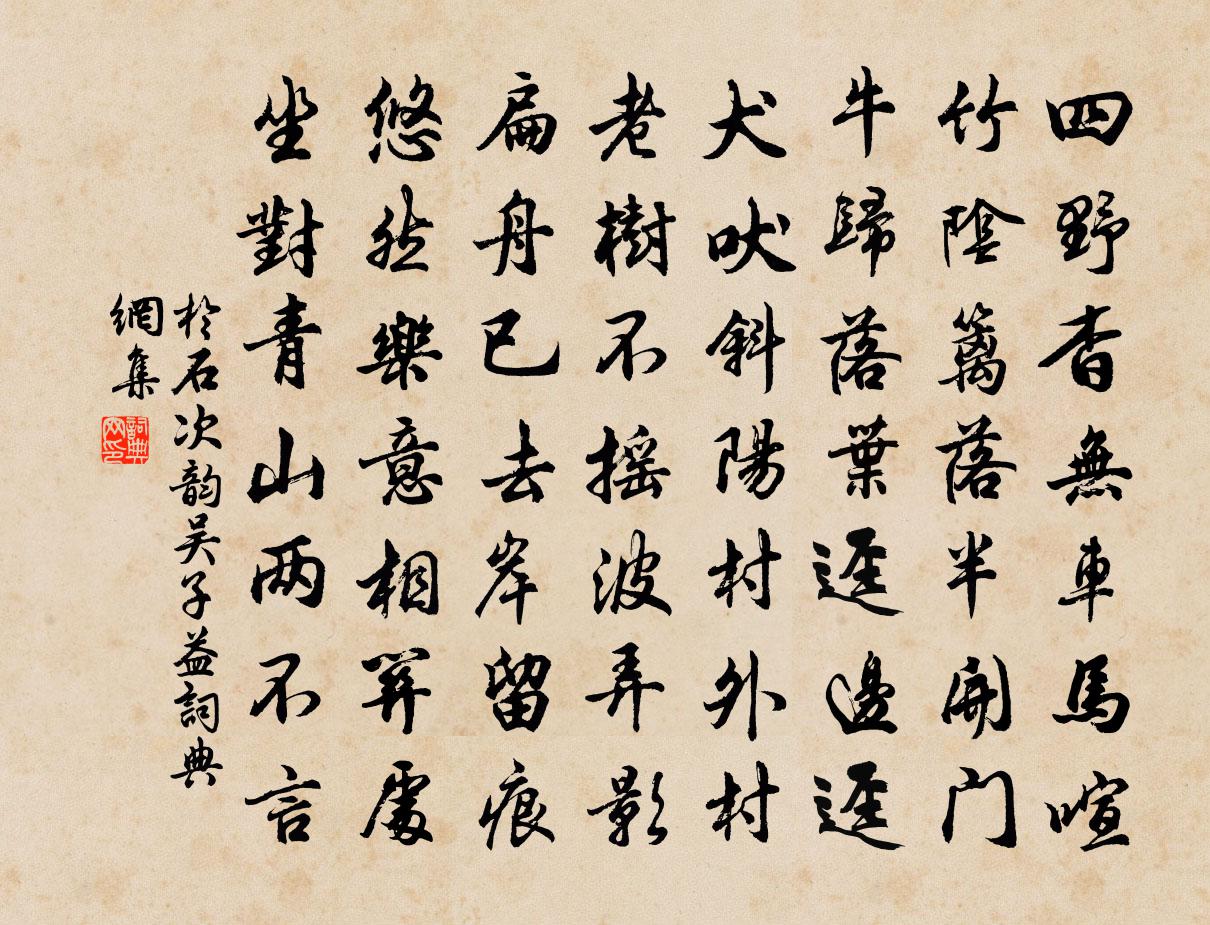 四野杳無車馬喧
竹陰籬落半開門
牛歸落葉逕邊逕
犬吠斜陽村外村
老樹不摇波弄影
扁舟已去岸留痕
悠然樂意相關處
坐對青山两不言
於石次韵吴子益詞典
網集
詞典
网印